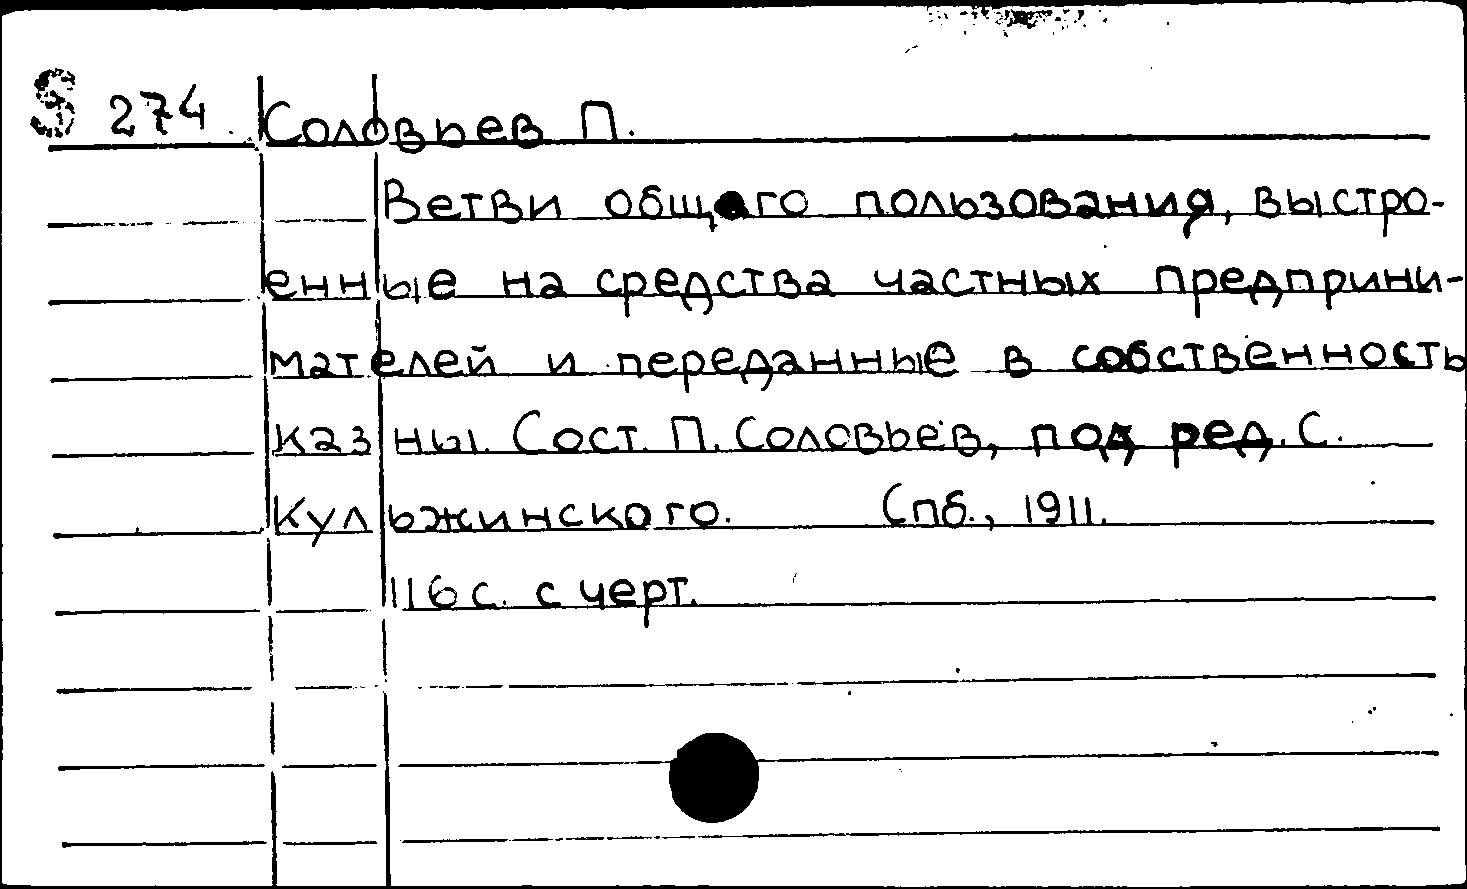 S 274 Соловьев П.
Ветви общаго пользования, выстро-
енные на средства частных предприни-
мателей и переданные в собственность
казны. Сост. П. Соловьев, под ред. С.
Кульжинского. Спб., 1911.
116 с. с черт.